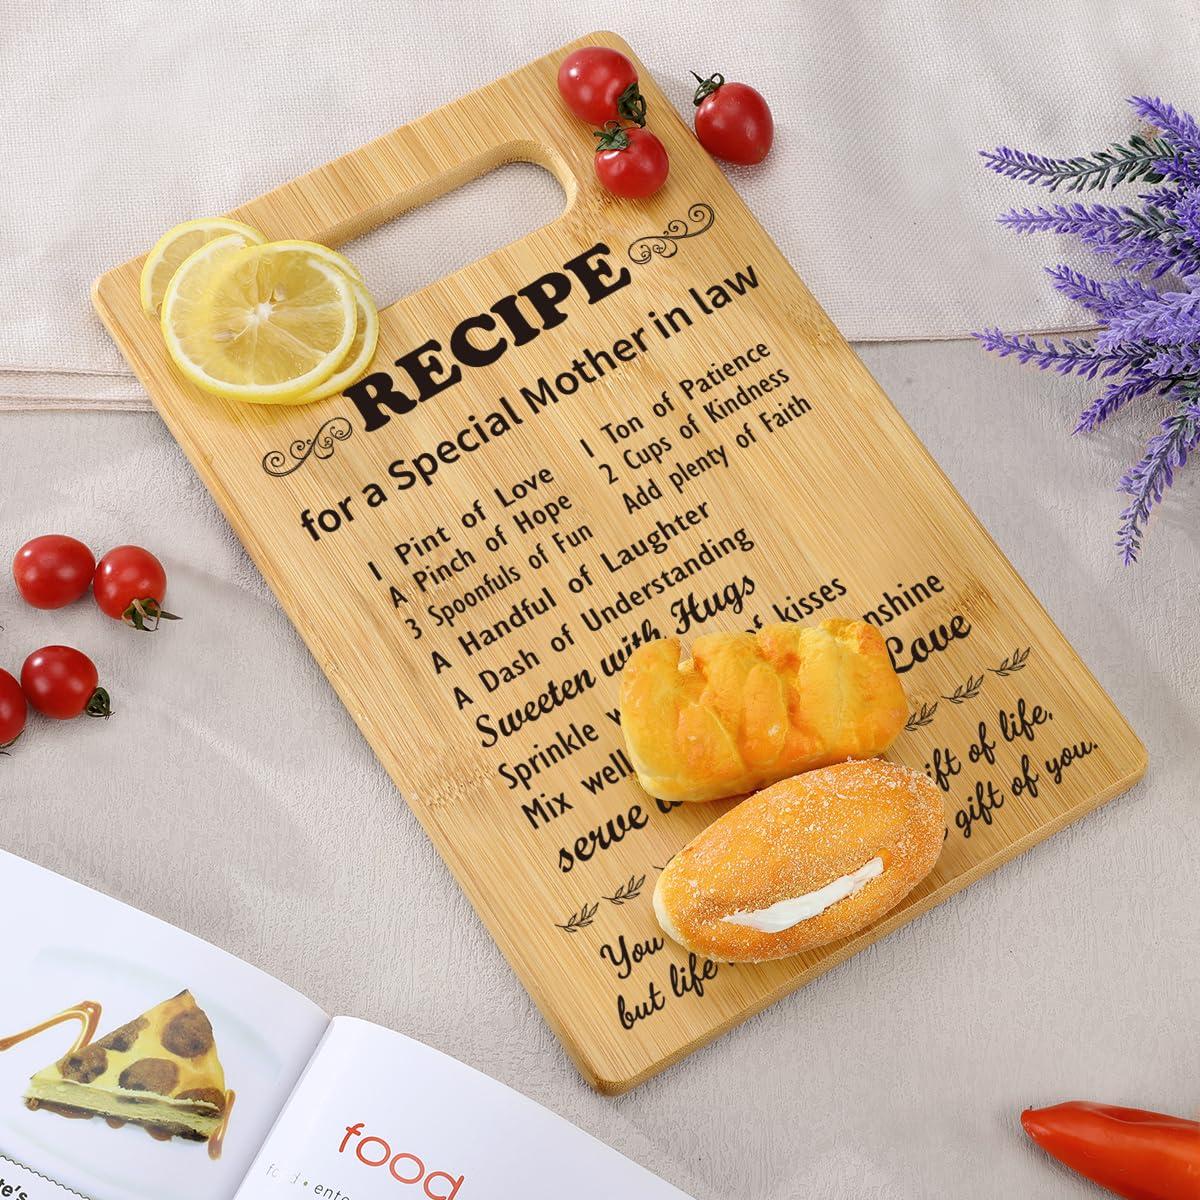 RECIPE
for a Special Mother in law
1 Pint of Love
A Pinch of Hope
3 Spoonfuls of Fun
1 Ton of Patience
2 Cups of Kindness
Add plenty of Faith
A Handful of Laughter
A Dash of Understanding
Sweeten with Hugs
Sprinkle of kisses
Mix well nshine
serve Love
You ift of life,
but life gift of you.
food
food • ente
te's